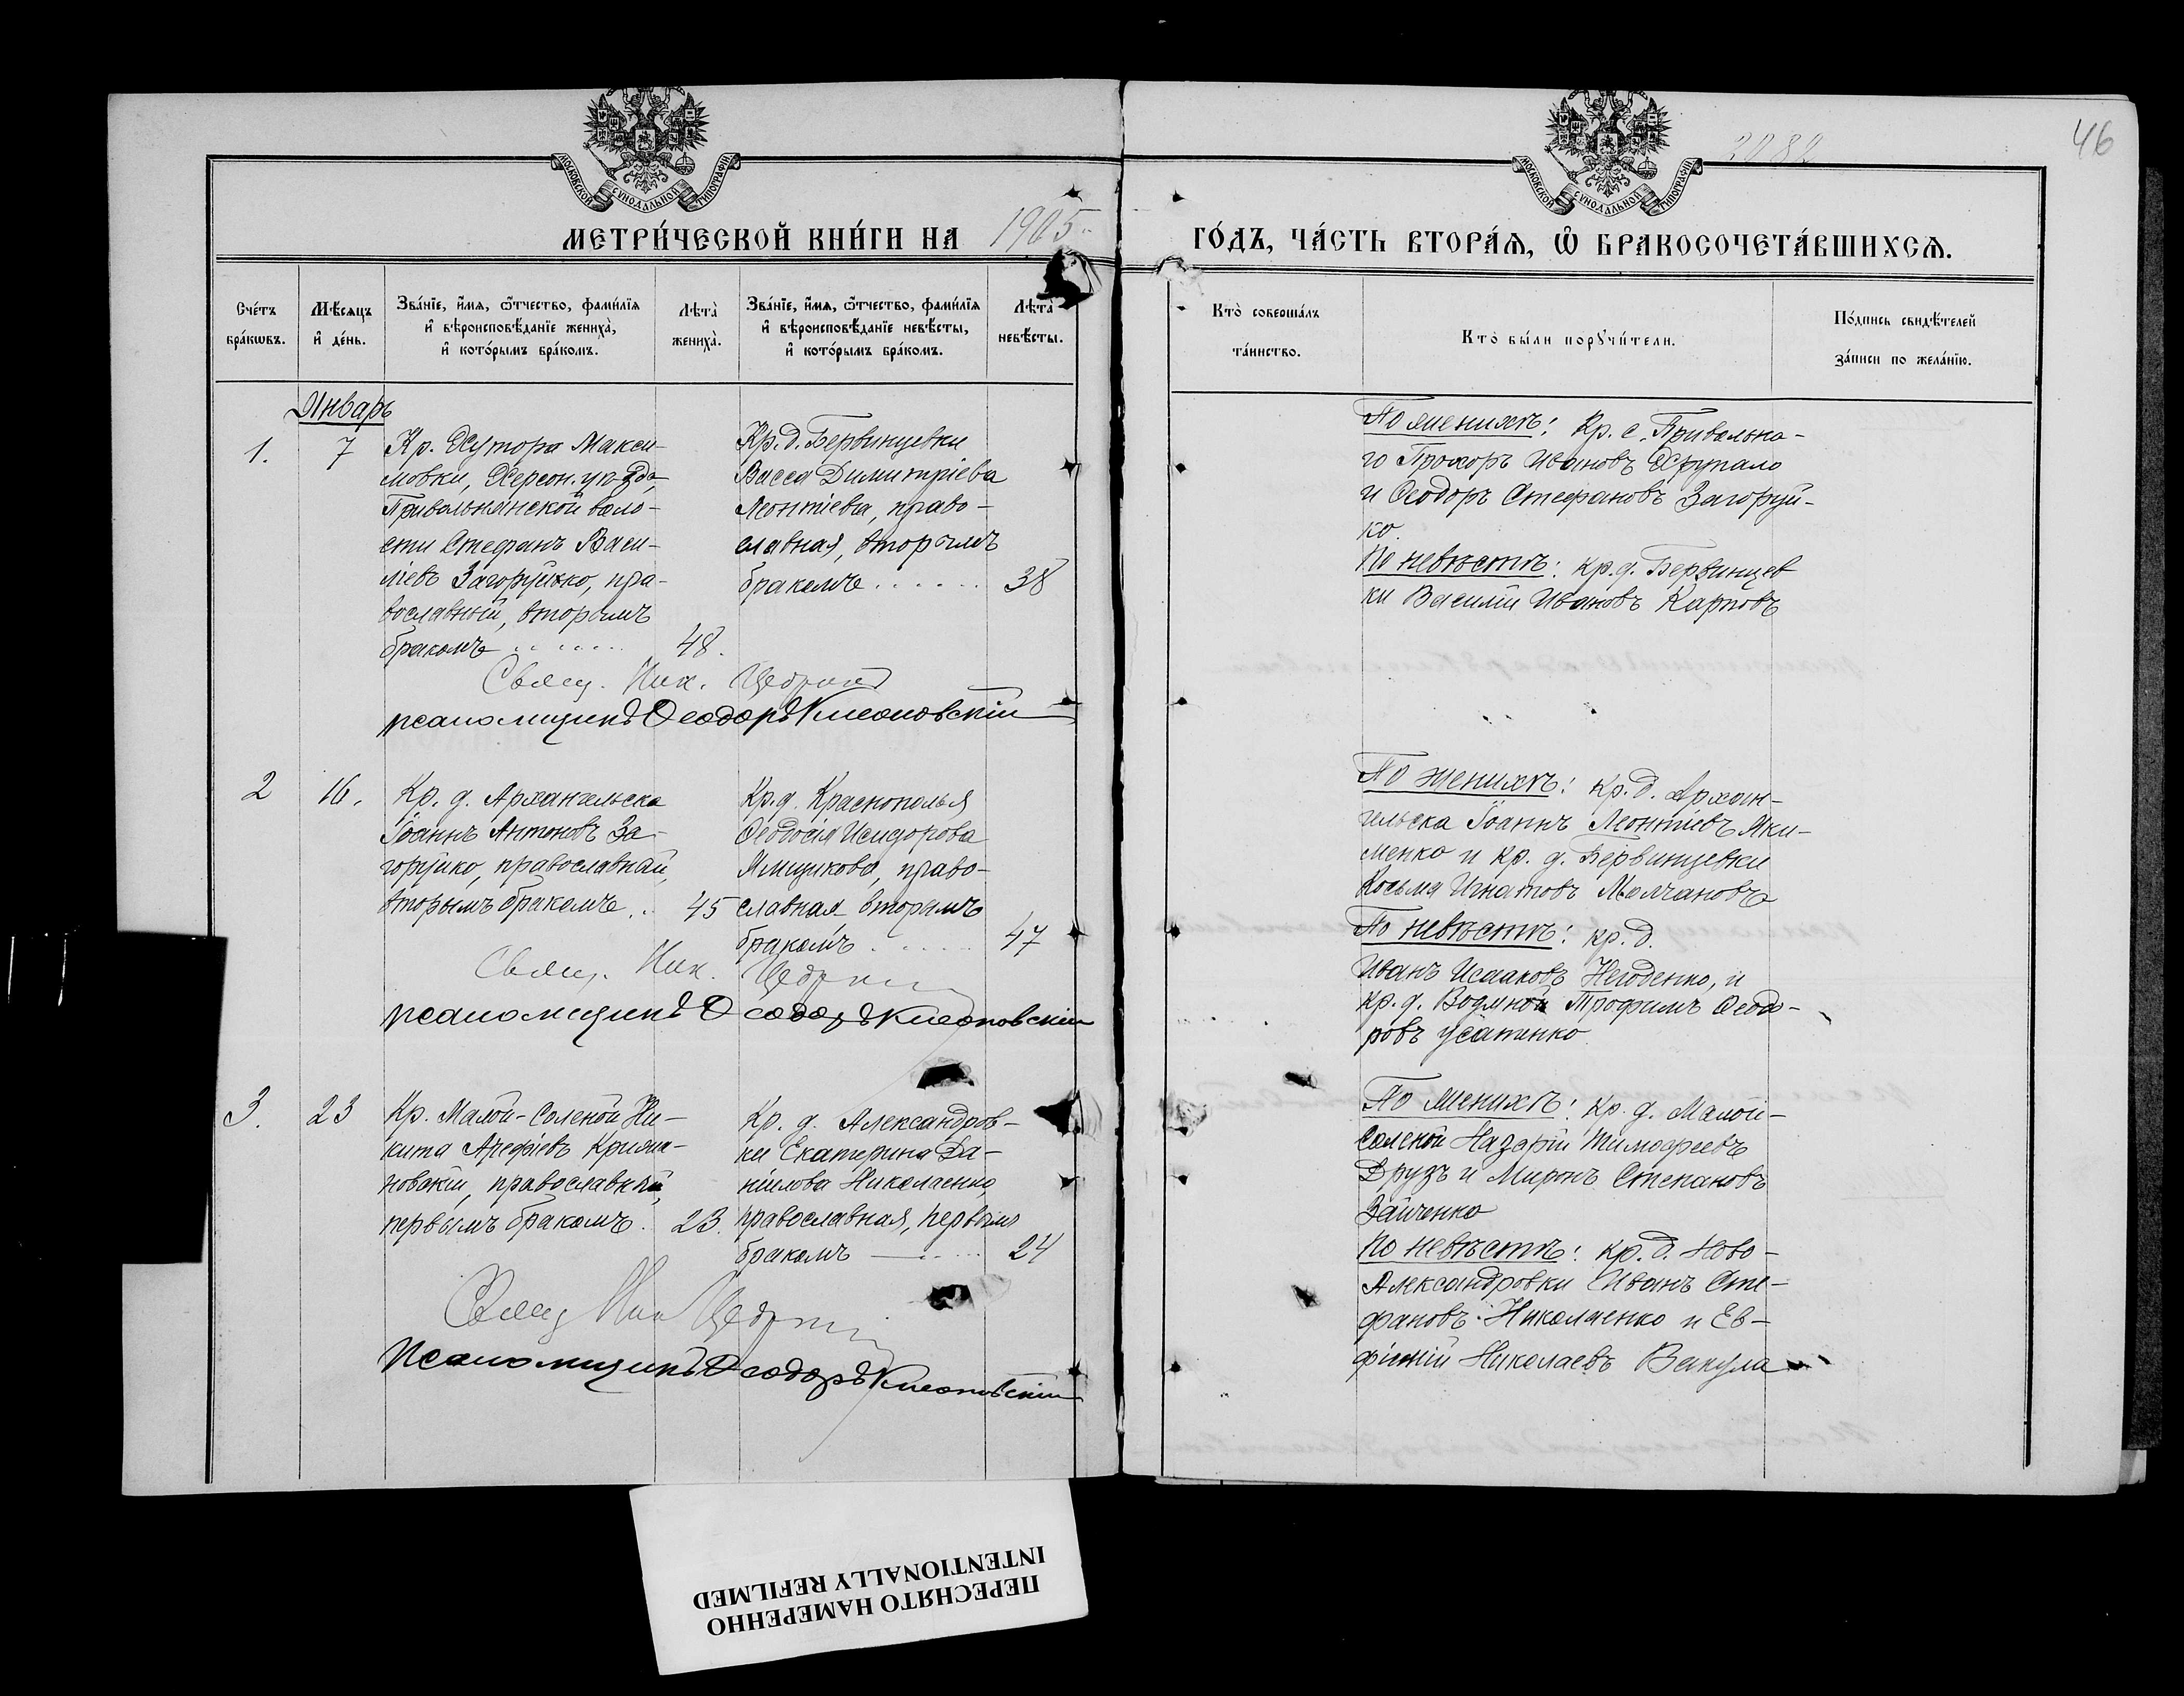 46
МОСКОВСКОЙ СУНОДАЛЬНОЙ ТИПОГРАФІИ
МОСКОВСКОЙ СУНОДАЛЬНОЙ ТИПОГРАФІИ
МЕТРИ́ЧЕСКОЙ КНИ́ГИ НА 1905
ГО́ДЪ, ЧА́СТЬ ВТОРА́Ѧ, Ѡ БРАКОСОЧЕТА́ВШИХСѦ.
Сче́тъ бра́кѡвъ.
Мѣ́сяцъ и҆ де́нь.
Зва́нїе, и҆́мя, ѻ҆́тчество, фами́лїя
и҆ вѣроисповѣ́данїе жениха̀,
и҆ кото́рымъ бра́комъ.
Лѣта̀ жениха̀.
Зва́нїе, и҆́мя, ѻ҆́тчество, фами́лїя
и҆ вѣроисповѣ́данїе невѣ́сты,
и҆ кото́рымъ бра́комъ.
Лѣта̀ невѣ́сты.
Кто̀ соверша́лъ
та́инство.
Кто̀ бы́ли порꙋчи́тели.
По́дпись свидѣ́телей
за́писи по жела́нїю.
Январь
1.
7
Кр. Хутора Макси-
мовки, Херсон. уѣзда,
Привольнянской воло-
сти Стефанъ Васи-
ліевъ Загоруйко, пра-
вославный, вторымъ
бракомъ . . . . . 48.
Кр. д. Бервинцевки
Васса Димитріева
Леонтіева, право-
славная, вторымъ
бракомъ . . . . . . 38
Свящ. Ник.
псаломщикъ Ѳеодоръ
По женихѣ: Кр. с. Привольна-
го Прохоръ Ивановъ Хрупало
и Ѳеодоръ Стефановъ Загоруй-
ко.
По невѣстѣ: кр. д. Бервинцев
ки Василій Ивановъ Карповъ
2
16.
Кр. д. Архангельска
Іоаннъ Антоновъ За-
горуйко, православный,
вторымъ бракомъ . . 45
Кр. д. Краснополья
Ѳеодосія Исидорова
Ямщикова, право-
славная вторымъ
бракомъ . . . . . 47
Свящ. Ник.
псаломщикъ Ѳеодоръ
По женихѣ: кр. д. Архан-
гельска Іоаннъ Леонтіевъ Яки-
менко и кр. д. Бервинцевки
Косьма Игнатовъ Молчановъ
По невѣстѣ: кр. д.
Иванъ Исааковъ Негоденко, и
кр. д. Водяной Трофимъ Ѳеодо-
ровъ Усатенко
3.
23
Кр. Малой-Соленой Ни-
кита Арефіевъ Крима-
новскій, православный,
первымъ бракомъ. 23.
Кр. д. Александров-
ки Екатерина Да-
ніилова Николаенко,
православная, первымъ
бракомъ — . . . . 24
Свящ Ник
Псаломщикъ Ѳеодоръ
По женихѣ: Кр. д. Малой-
Соленой Назарій Тимофеевъ
Друзъ и Миронъ Степановъ
Зайченко
По невѣстѣ: кр. д. Ново-
Александровки Иванъ Сте-
фановъ Николаенко и Ев-
фимій Николаевъ Вакула
ПЕРЕСНЯТО НАМЕРЕННО
INTENTIONALLY REFILMED